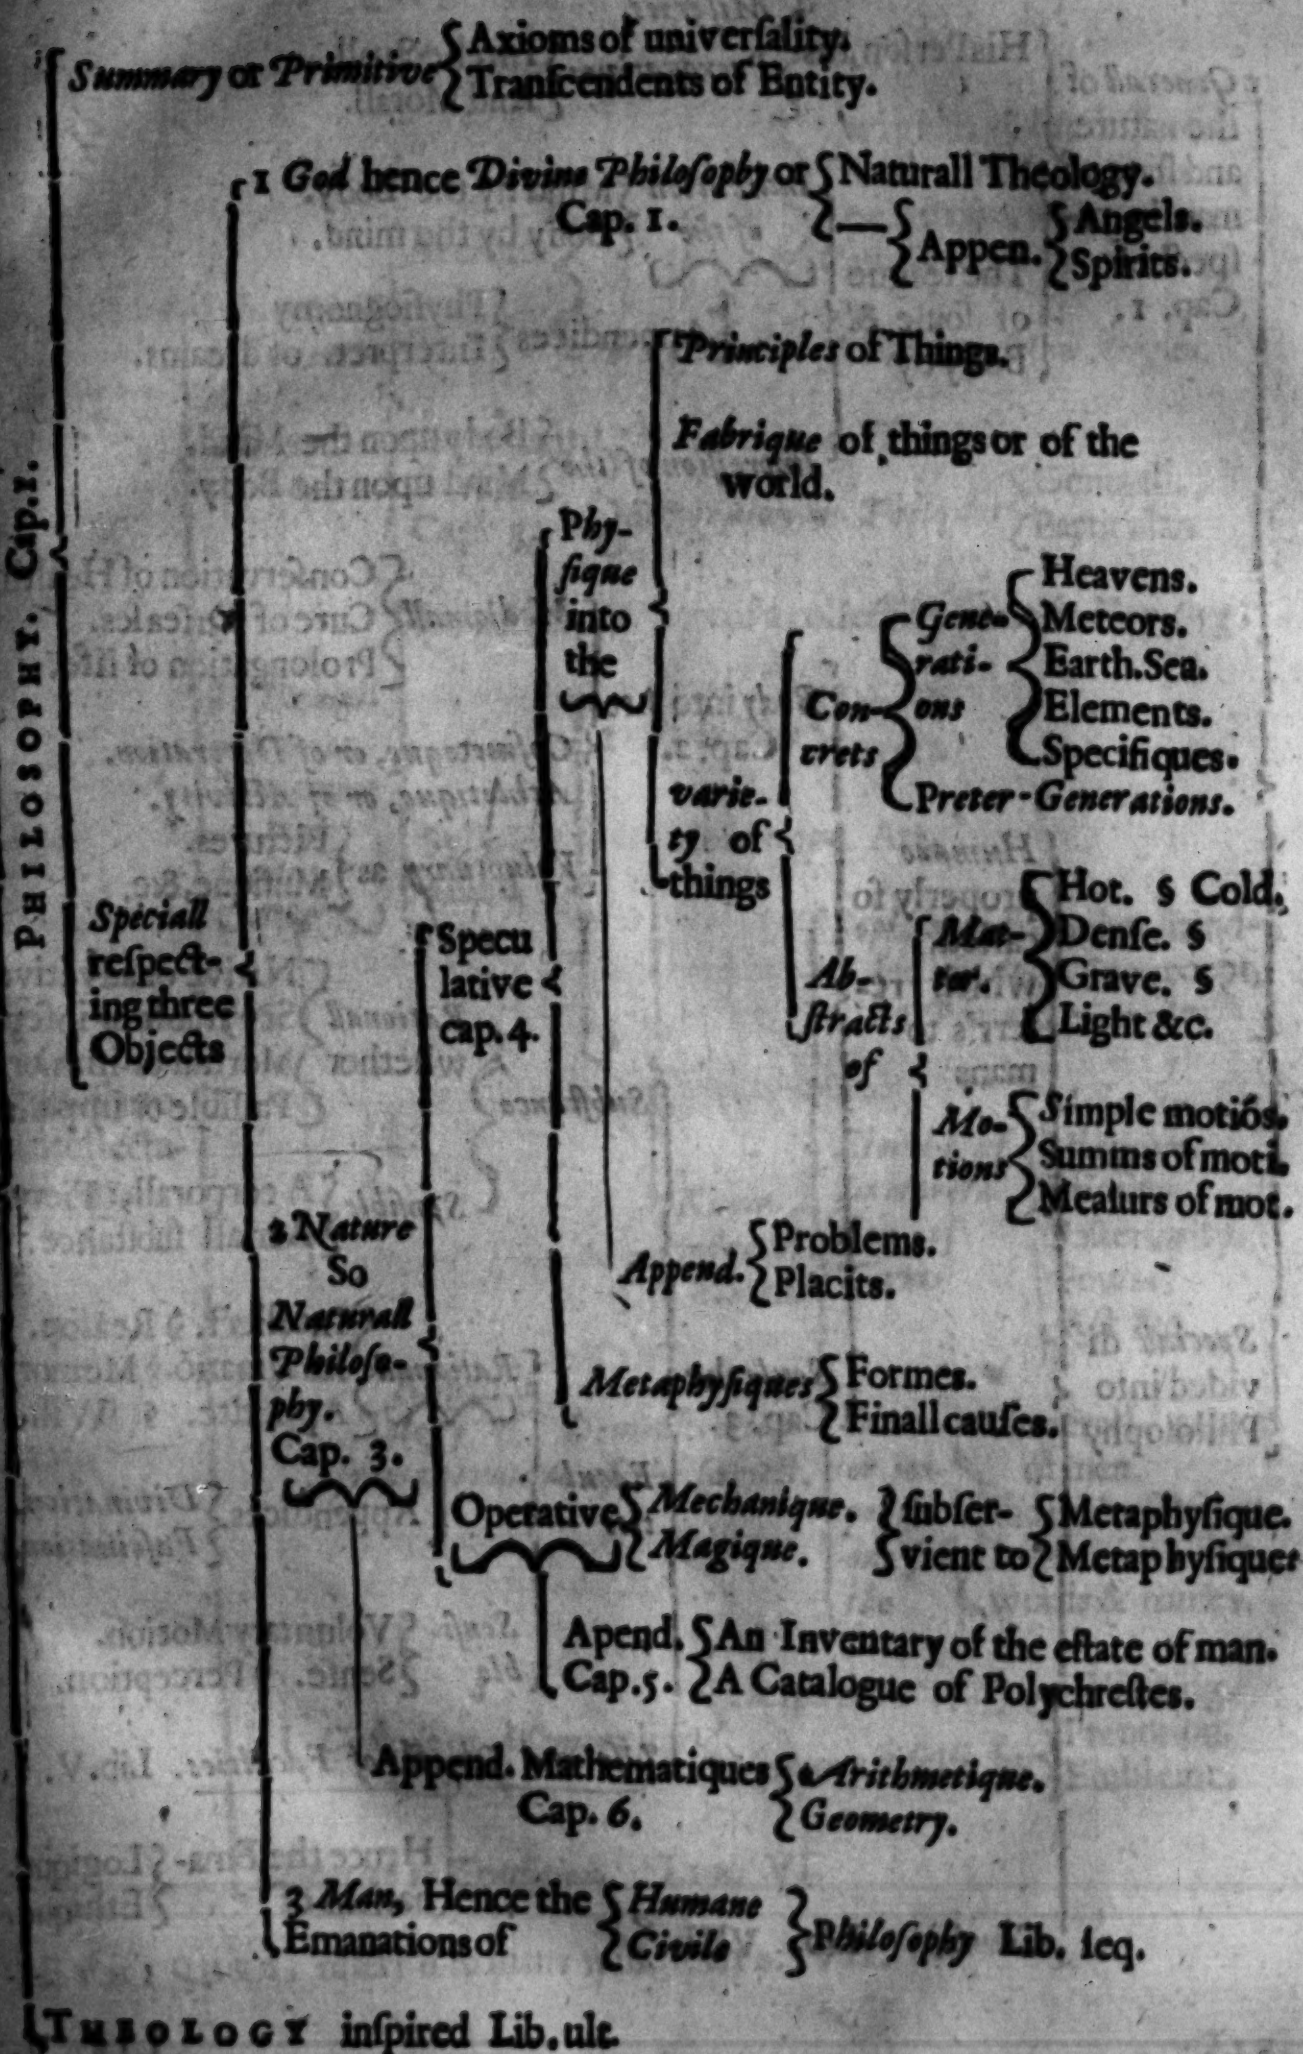 PHILOSOPHY. Cap.1.
Summary or Primitive
Axioms of universality.
Transcendents of Entity.
Speciall
respect-
ing three
Objects
1 God hence Divine Philosophy or
Cap. 1.
Naturall Theology.
Appen.
Angels.
Spirits.
2 Nature
So
Naturall
Philoso-
phy.
Cap. 3.
Specu
lative
cap. 4.
Phy-
sique
into
the
Principles of Things.
Fabrique of things or of the
world.
varie-
ty of
things
Con-
crets
Gene-
rati-
ons
Heavens.
Meteors.
Earth. Sea.
Elements.
Specifiques.
Preter-Generations.
Ab-
stracts
of
Mat-
ter.
Hot. § Cold.
Dense. §
Grave. §
Light &c.
Mo-
tions
Simple motiós.
Summs of moti.
Measurs of mot.
Append.
Problems.
Placits.
Metaphysiques
Formes.
Finall causes.
Operative
Mechanique.
Magique.
subser-
vient to
Metaphysique.
Metaphysiques
Apend.
Cap. 5.
An Inventary of the estate of man.
A Catalogue of Polychrestes.
Append. Mathematiques
Cap. 6.
Arithmetique.
Geometry.
3 Man, Hence the
Emanations of
Humane
Civile
Philosophy Lib. seq.
THEOLOGY inspired Lib. ult.